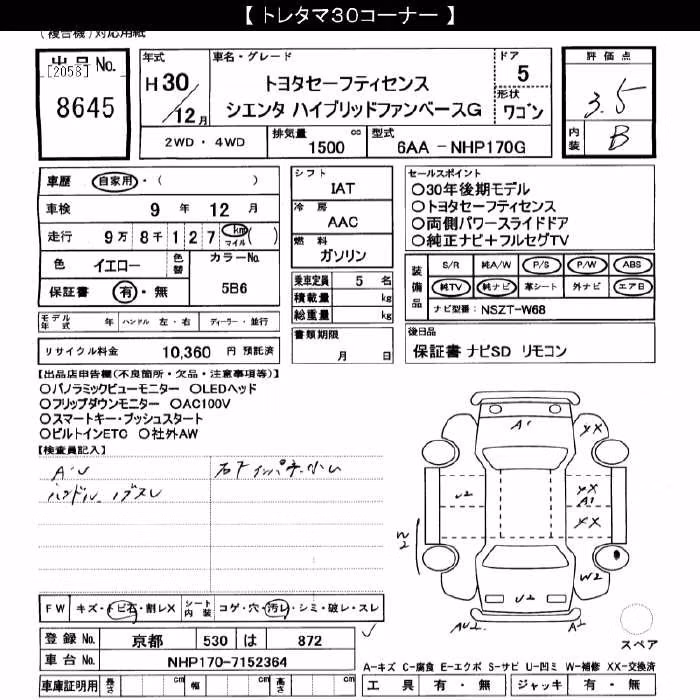 【 トレタマ30コーナー 】
(複合機)対応用紙
出品 No.
[2058]
8645
年式
H30/12月
車名・グレード
トヨタセーフティセンス
シエンタ ハイブリッドファンベースG
ドア
5
形状
ワゴン
2WD ・ 4WD
排気量 1500 cc
型式 6AA - NHP170G
評価点
3.5
内装 B
車歴 自家用・( )
車検 9 年 12 月
走行 9万 8千 1 2 7 km マイル ( )
色 イエロー 色替 カラーNo.
保証書 有・無 5B6
モデル年式 年 ハンドル 左・右 ディーラー・並行
リサイクル料金 10,360 円 預託済
シフト
IAT
冷房
AAC
燃料
ガソリン
乗車定員 5 名
積載量 kg
総重量 kg
書類期限
月 日
セールスポイント
○30年後期モデル
○トヨタセーフティセンス
○両側パワースライドドア
○純正ナビ+フルセグTV
装備品
S/R 純A/W P/S P/W ABS
純TV 純ナビ 革シート 外ナビ エアB
ナビ型番: NSZT-W68
後日品
保証書 ナビSD リモコン
【出品店申告欄(不良箇所・欠品・注意事項等)】
○パノラミックビューモニター ○LEDヘッド
○フリップダウンモニター ○AC100V
○スマートキー・プッシュスタート
○ビルトインETC ○社外AW
【検査員記入】
AU
ハンドル
A1
XX
U2
XX
A1
XX
W2
W2
U2
AU2
A2
スペア
FW キズ・トビ石・割レX シート内装 コゲ・穴・汚レ・シミ・破レ・スレ
登録 No. 京都 530 は 872
車台 No. NHP170-7152364
車庫証明用 長さ cm 幅 cm 高さ cm
A-キズ C-腐食 E-エクボ S-サビ U-凹ミ W-補修 XX-交換済
工具 有・無 ジャッキ 有・無